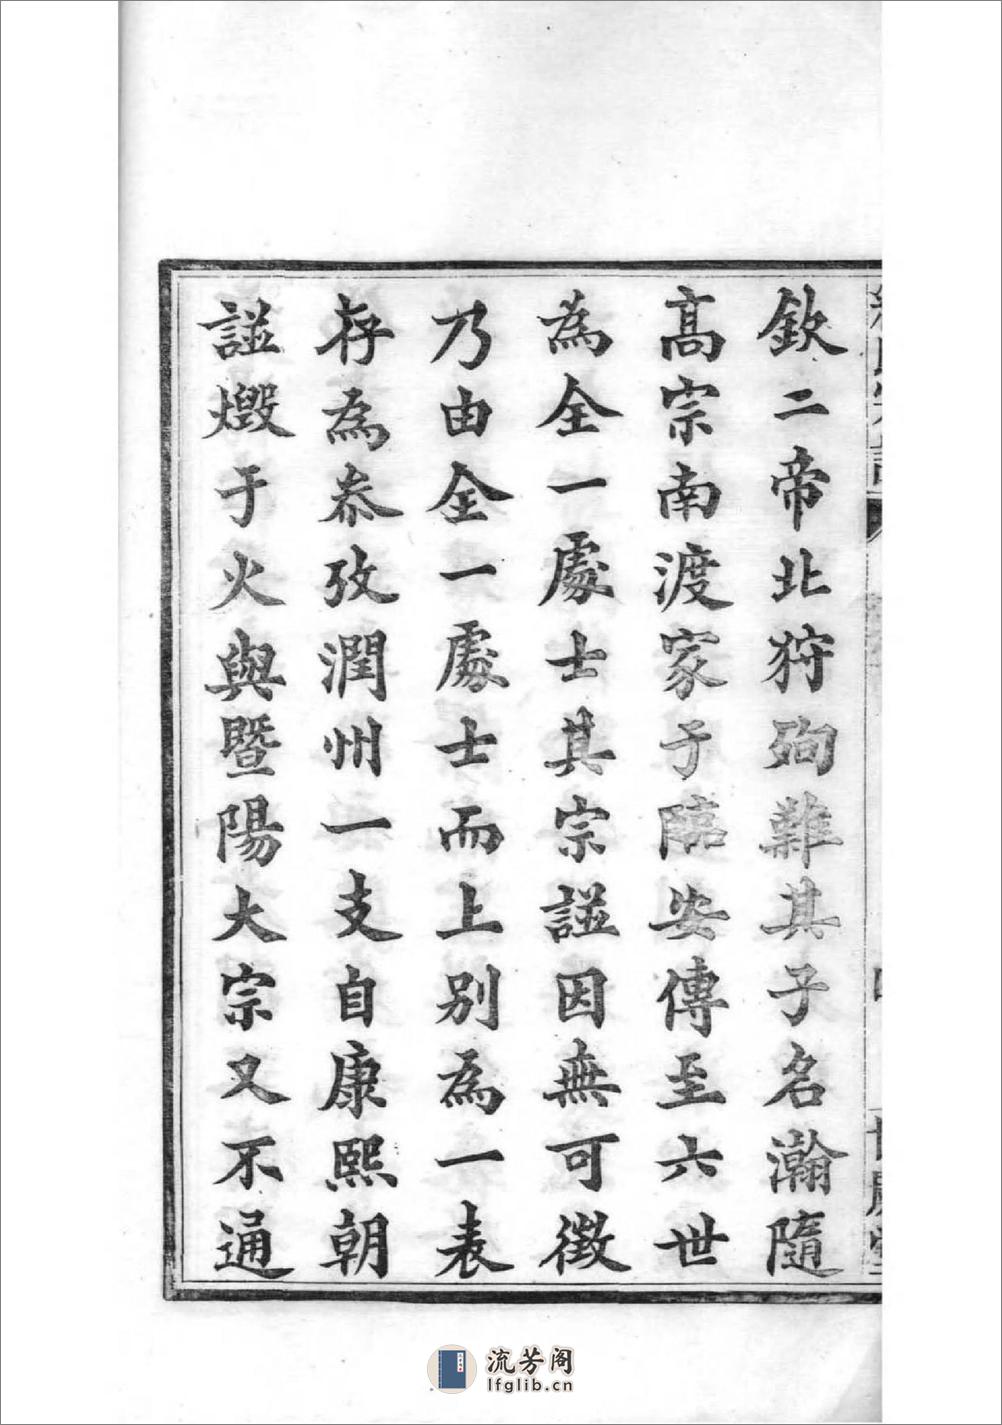 欽二帝北狩殉難其子名瀚隨
髙宗南渡家于臨安傳至六世
為全一處士其宗謚因無可徵
乃由全一處士而上別為一表
存為叅攷潤州一支自康熙朝
謚燬于火與暨陽大宗又不通
流芳阁
lfglib.cn